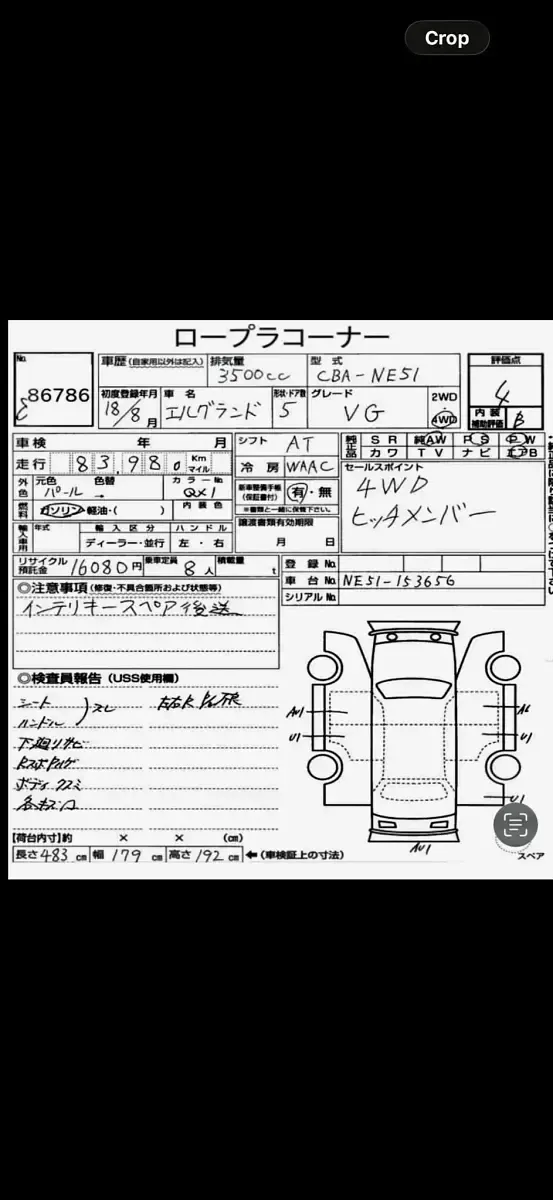 Crop
ロープラコーナー
No.
86786
車歴 (自家用以外は記入)
排気量
3500cc
型式
CBA-NE51
評価点
4
内装補助評価 B
初度登録年月
18/8月
車名
エルグランド
形状・ドア数
5
グレード
VG
2WD
4WD
車検 年 月
走行 83,980 Km マイル
シフト AT
冷房 WAAC
純正品 SR 純AW PS PW
カワ TV ナビ エアB
外色 元色 パール 色替 → カラーNo. QX1
燃料 ガソリン 軽油・( ) 内装色
新車整備手帳(保証書付) 有・無
※書類と一緒に保管下さい。
譲渡書類有効期限
月 日
セールスポイント
4WD
ヒッチメンバー
輸入車用 年式 輸入区分 ハンドル
ディーラー・並行 左・右
リサイクル預託金 16080円
乗車定員 8人
積載量 t
登録No.
車台No. NE51-153656
シリアルNo.
◎注意事項 (修復・不具合箇所および状態等)
インテリキースペア後送
◎検査員報告 (USS使用欄)
シート
ハンドル
スレ
下廻りサビ
ボディクスミ
A41
U1
U1
U1
【荷台内寸】約 × × (cm)
長さ483cm 幅179cm 高さ192cm ←(車検証上の寸法)
スペア